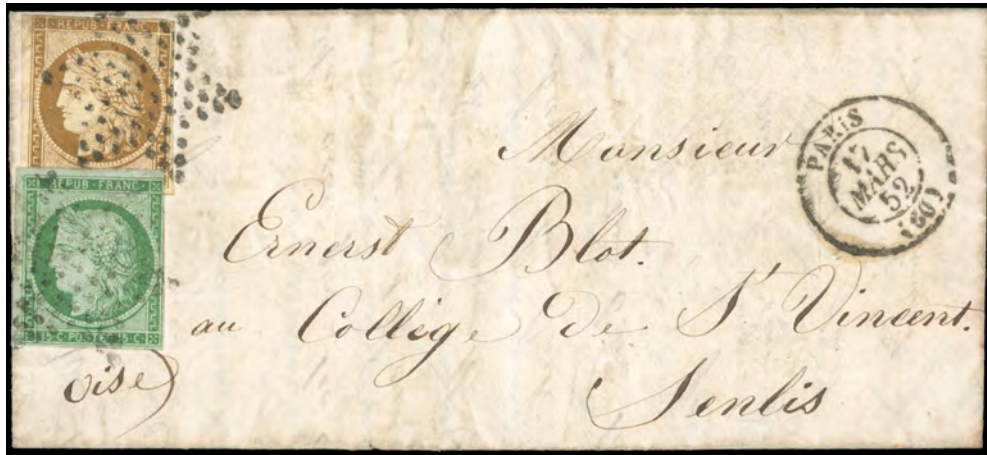 REPUB·FRANC·
REPUB·FRANC·
15·C·POSTES·15·C·
PARIS
17
MARS
52
(60)
Monsieur
Ernerst Blot.
au Collége De St Vincent.
Senlis
oise)